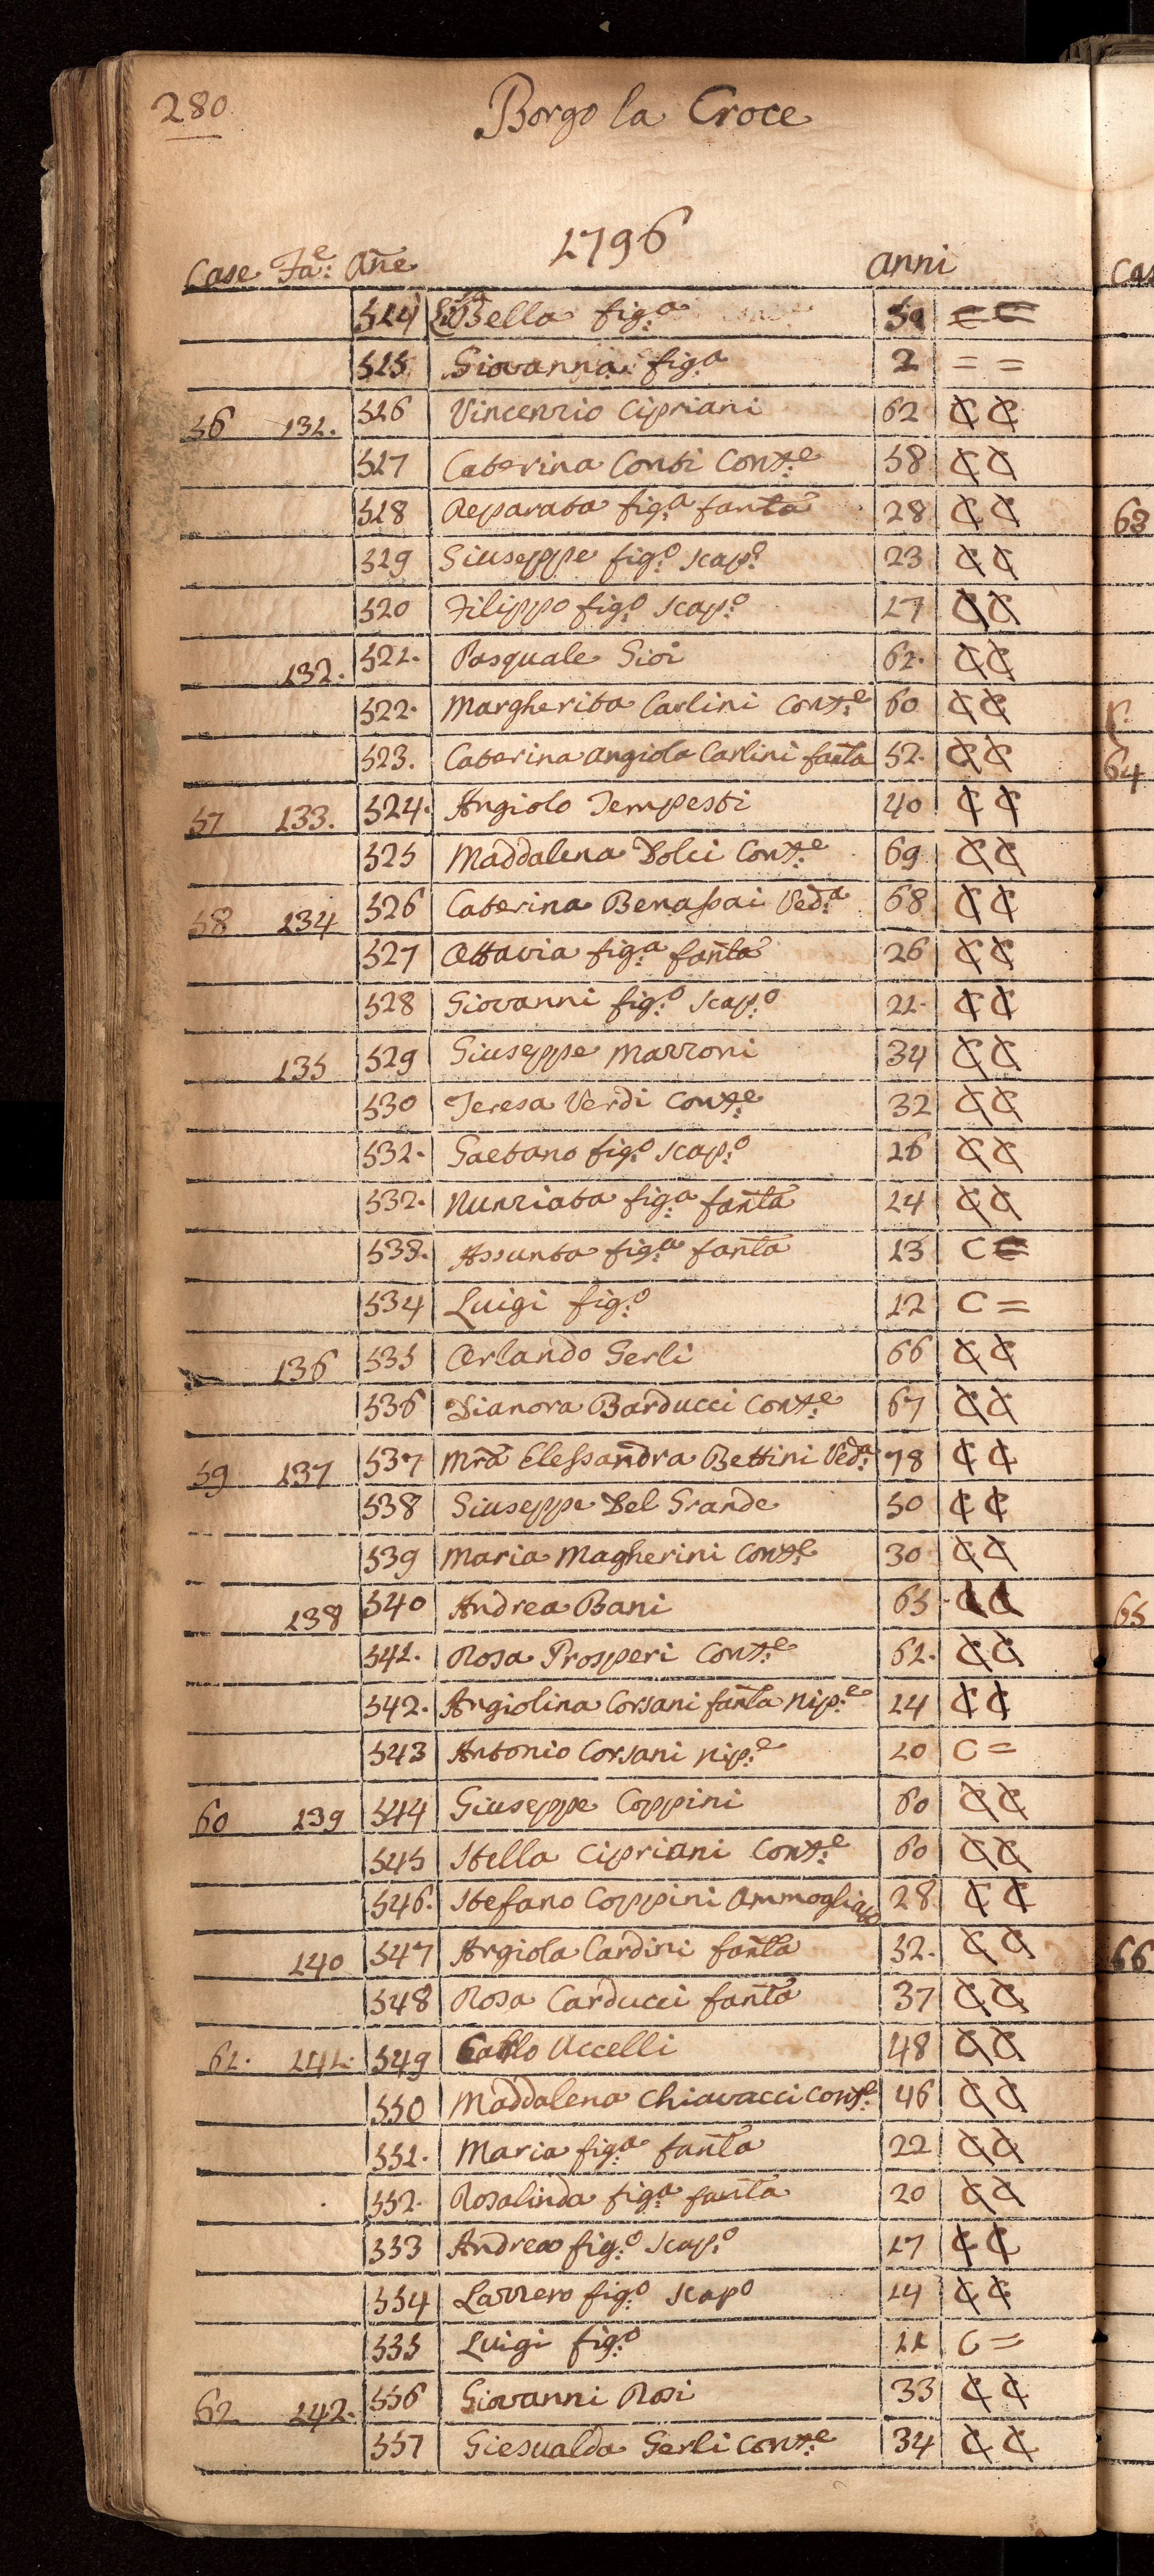 280
Borgo la Croce
1796
Case Fa:e Añe anni
514 fig:a
515 Giovanna fig:a 2 = =
56 131. 516 Vincenzio Cipriani 62 C C
517 Caterina Conti Cont:e 58 C C
518 Reparata fig:a fanta 28 C C
519 Giuseppe fig:o scap:o 23 C C
520 Filippo fig:o scap:o 17 C C
132. 521. Pasquale Gioi 61. C C
522. Margherita Carlini Cont:e 60 C C
523. Caterina Angiola Carlini fanta 51. C C
57 133. 524. Angiolo Tempesti 40 C C
525 Maddalena Dolci Cont:e 69 C C
58 134 526 Caterina Benassai Ved:a 68 C C
527 Ottavia fig:a fanta 26 C C
528 Giovanni fig:o scap:o 21. C C
135 529 Giuseppe Marroni 34 C C
530 Teresa Verdi Cont:e 32 C C
531. Gaetano fig:o scap:o 16 C C
532. Nunziata fig:a fanta 14 C C
533. Assunta fig:a fanta 13 C =
534 Luigi fig:o 12 C =
136 535 Orlando Gerli 66 C C
536 Dianora Barducci Cont:e 67 C C
59 137 537 Mra Elessandra Bettini Ved:a 78 C C
538 Giuseppe Del Grande 50 C C
539 Maria Magherini Cont:e 30 C C
138 540 Andrea Bani 65 C C
541. Rosa Prosperi Cont:e 61. C C
542. Angiolina Corsani fanta nip:e 14 C C
543 Antonio Corsani nip:e 10 C =
60 139 544 Giuseppe Coppini 60 C C
545 Stella Cipriani Cont:e 60 C C
546. Stefano Coppini Ammogliato 28 C C
140 547 Angiola Cardini fanta 51. C C
548 Rosa Carducci fanta 37 C C
61. 141. 549 Carlo Uccelli 48 C C
550 Maddalena Chiavacci Cont:e 46 C C
551. Maria fig:a fanta 22 C C
552. Rosalinda fig:a fanta 20 C C
553 Andrea fig:o scap:o 17 C C
554 Lazzero fig:o scapo 14 C C
555 Luigi fig:o 11 C =
62 142. 556 Giovanni Rosi 33 C C
557 Giesualda Gerli Cont:e 34 C C
Cas
63
64
65
66